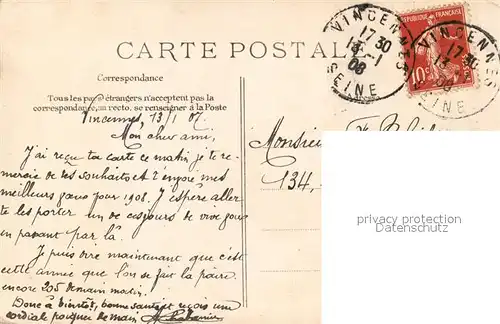 CARTE POSTALE
Correspondance
Tous les pays étrangers n'acceptent pas la
correspondance au recto, se renseigner à la Poste
VINCENNES
17 30
13 -1
08
SEINE
REPUBLIQUE FRANÇAISE
10
VINCENNES
17 30
13
SEINE
Vincennes, 13/1 07.
Mon cher ami,
J'ai reçu ta carte ce matin je te re-
mercie de tes souhaits et t'envoie mes
meilleurs pour 1908. J'espère aller
te les porter un de ces jours de vive
en passant par là.
Je puis dire maintenant que c'est
cette année que l'on se fait la paire
encore 205 demain matin.
Donc à bientôt, bonne santé et reçois une
cordiale poignée de main
Monsieur
134,
privacy protection
Datenschutz